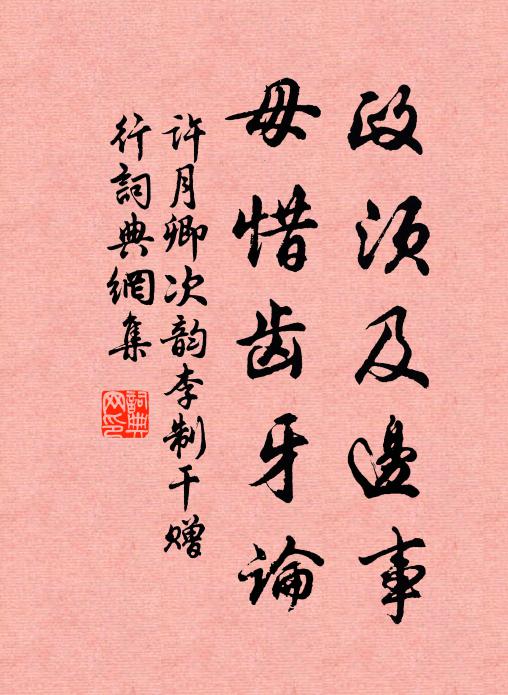 政须及邊事
毋惜齿牙論
许月卿次韵李制干赠
行詞典網集
詞典
网印